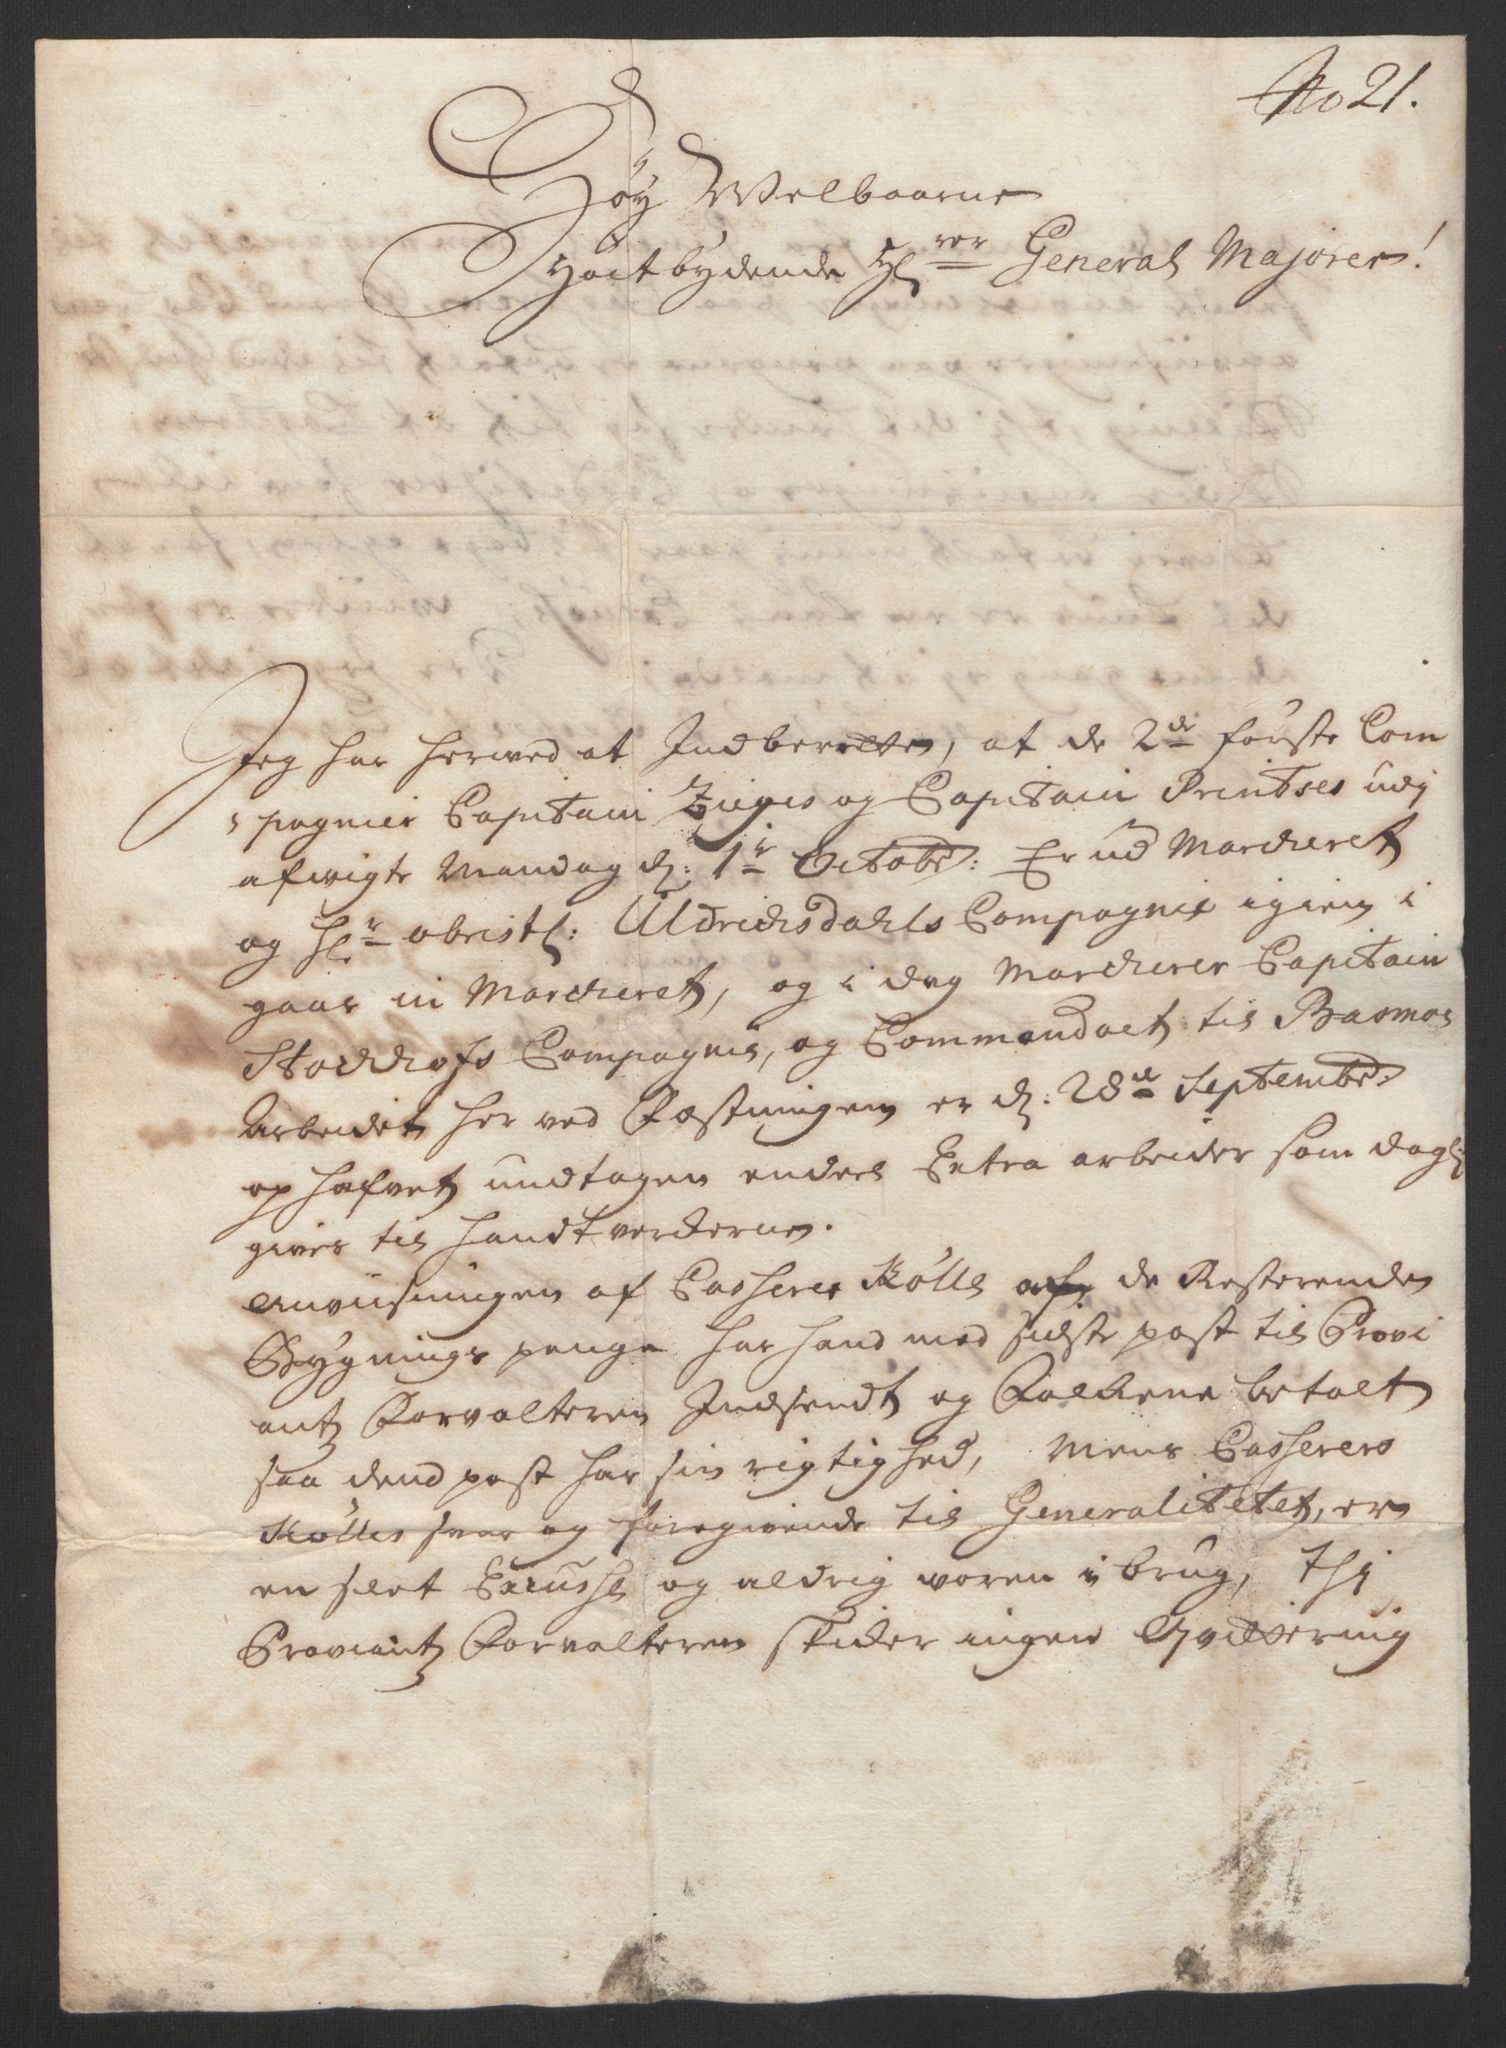 No 21.
Höy Welbaarne
Höitbydende Hr General Majorer!
Jeg har herved at Indberette, at de 2de första Com
pagnier Capitain Zieges og Capitain Printses udj
afvigte Mandag d: 1te Octobr: Er ud Marcheret
og Hr obristl: Uldrichsdahls Compagnie igien i
gaar in Marcheret, og i dag Marcherer Capitain
Compagnie, og Commandoet til Basmos
Arbeidet her ved Fæstningen er d: 28de Septembr:
ophæfvet undtagen endeel Extra arbeider som dagl:
gives til Handtverckerne.
Anviisningen af Casserer Kölle af de Resterende
Bygnings penge har hand med sidste post til Provi
ant Forvalteren Indsendt og Folckene betalt
saa dend post har sin rigtighed, Mens Casserers
Kölles svar og foregivende til Generalitetet, er
en slet Excusse og aldrig voren i brug, thj
Proviant Forvalteren skicker ingen Qvittering